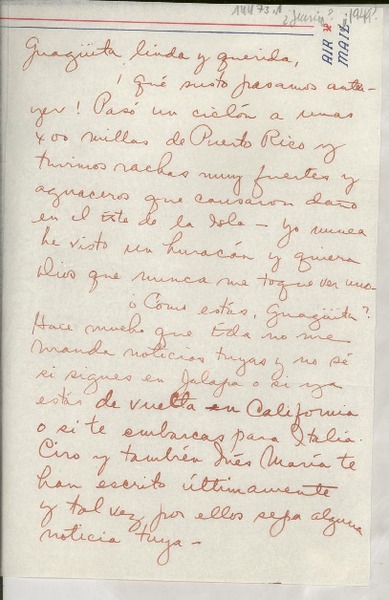 14473.1 ¿Junio? ¿1949?
AIR MAIL
Guagüita linda y querida,
¡Qué susto pasamos ante-
yer! Pasó un ciclón a unas
400 millas de Puerto Rico y
tuvimos rachas muy fuertes y
aguaceros que causaron daño
en el Este de la Isla - Yo nunca
he visto un huracán y quiera
Dios que nunca me toque ver uno.
¿Como estás, Guagüita?
Hace mucho que Eda no me
manda noticias tuyas y no sé
si sigues en Jalapa o si ya
estás de vuelta en California
o si te embarcas para Italia.
Ciro y también Inés María te
han escrito últimamente
y tal vez por ellos sepa alguna
noticia tuya -